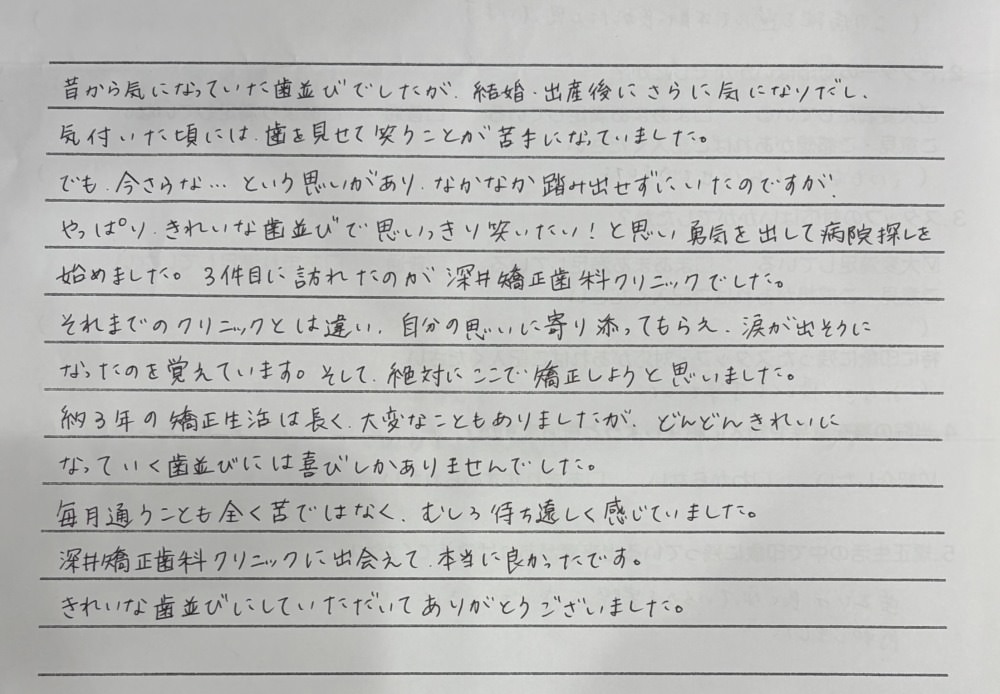 昔から気になっていた歯並びでしたが、結婚・出産後にさらに気になりだし、
気付いた頃には、歯を見せて笑うことが苦手になっていました。
でも、今さらな… という思いがあり、なかなか踏み出せずにいたのですが、
やっぱり、きれいな歯並びで思いっきり笑いたい！と思い勇気を出して病院探しを
始めました。3件目に訪れたのが深井矯正歯科クリニックでした。
それまでのクリニックとは違い、自分の思いに寄り添ってもらえ、涙が出そうに
なったのを覚えています。そして、絶対にここで矯正しようと思いました。
納3年の矯正生活は長く、大変なこともありましたが、どんどんきれいに
なっていく歯並びには喜びしかありませんでした。
毎月通うことも全く苦ではなく、むしろ待ち遠しく感じていました。
深井矯正歯科クリニックに出会えて、本当に良かったです。
きれいな歯並びにしていただいてありがとうございました。